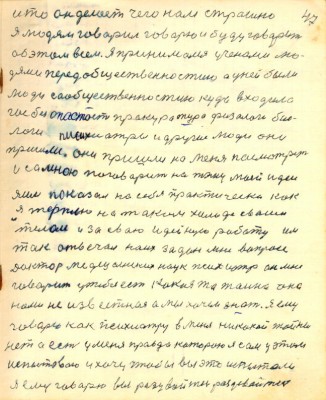 и то он делает чего нам страшно 47
Я людям говорил говорю и буду говорить
об этом всем. Я принимался учеными лю-
дями перед общественностию а у ней были
люди с общественностию куда входило
госбиопастост прокуратура физологи био-
логи психиатры и другие люди они
пришли. они пришли ко мне посмотреть
и самною поговорит на тему моей идеи
я им показал на себя практически как
я терплю на таком холоде своим
телом и за сваю идейную работу им
так отвечал нами задан мне вопрос
доктор медецынских наук психиатр он мне
говорит у тебя ест какая та тайна она
нами не известная а мы хочем знат. Я ему
говорю как психиатру в меня никакой тайны
нет а ест у меня правда которою я сам у этом
испытоваю и хочу чтобы вы это испытали
я ему говорю вы разувайтеся раздевайтеся